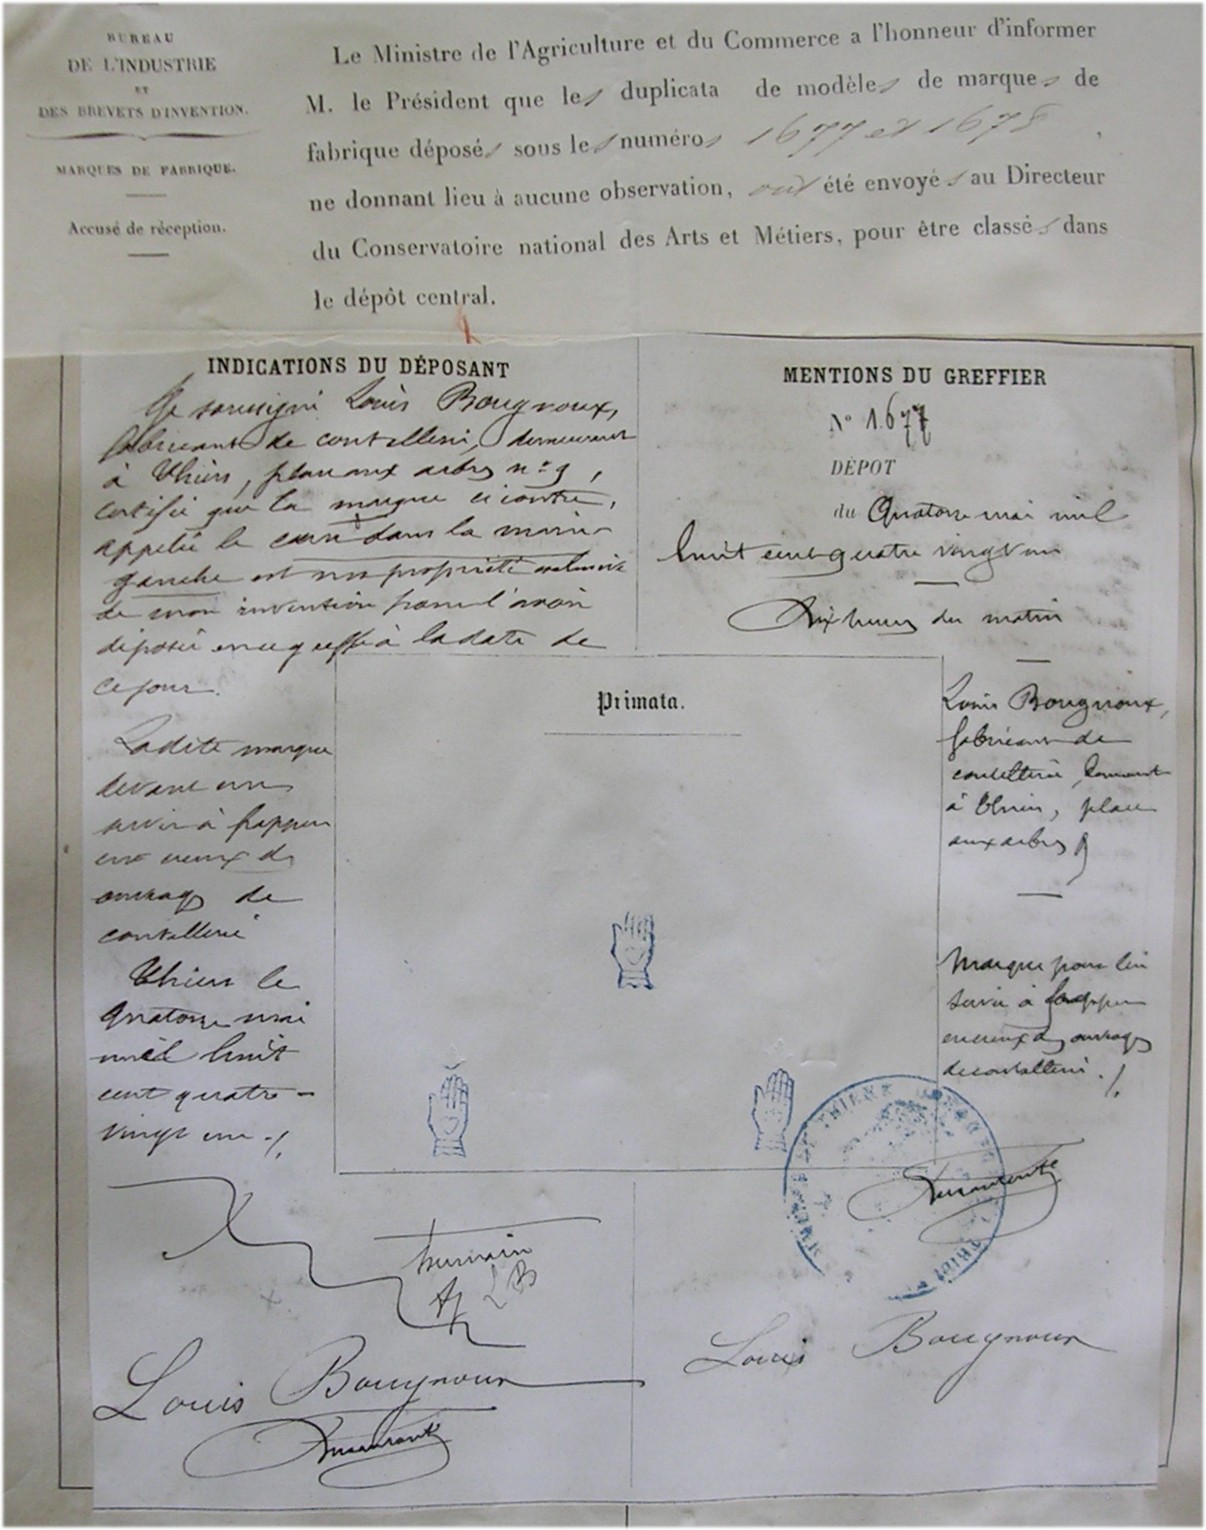 BUREAU
DE L'INDUSTRIE
ET
DES BREVETS D'INVENTION.
MARQUES DE FABRIQUE.
Accusé de réception.
Le Ministre de l'Agriculture et du Commerce a l'honneur d'informer
M. le Président que les duplicata de modèles de marques de
fabrique déposés sous les numéros 1677 et 1678,
ne donnant lieu à aucune observation, ont été envoyés au Directeur
du Conservatoire national des Arts et Métiers, pour être classés dans
le dépôt central.
INDICATIONS DU DÉPOSANT
Je soussigné Louis Bougnoux,
fabricant de coutellerie, demeurant
à Thiers, place aux arbres n° 9,
certifie que la marque ci contre,
appelée le cœur dans la main
gauche est ma propriété exclusive
de mon invention pour l'avoir
déposée au greffe à la date de
ce jour.
Ladite marque
devant
servir à frapper
en creux des
ouvrages de
coutellerie
Thiers le
quatorze mai
mil huit
cent quatre-
vingt un ./.
MENTIONS DU GREFFIER
N° 1677
DÉPOT
du Quatorze mai mil
huit cent quatre vingt un
Dix heures du matin
Louis Bougnoux,
fabricant de
coutellerie, demeurant
à Thiers, place
aux arbres 9
Marque pour lui
servir à frapper
en creux des ouvrages
de coutellerie ./.
Primata.
LB
Louis Bougnoux
Louis Bougnoux